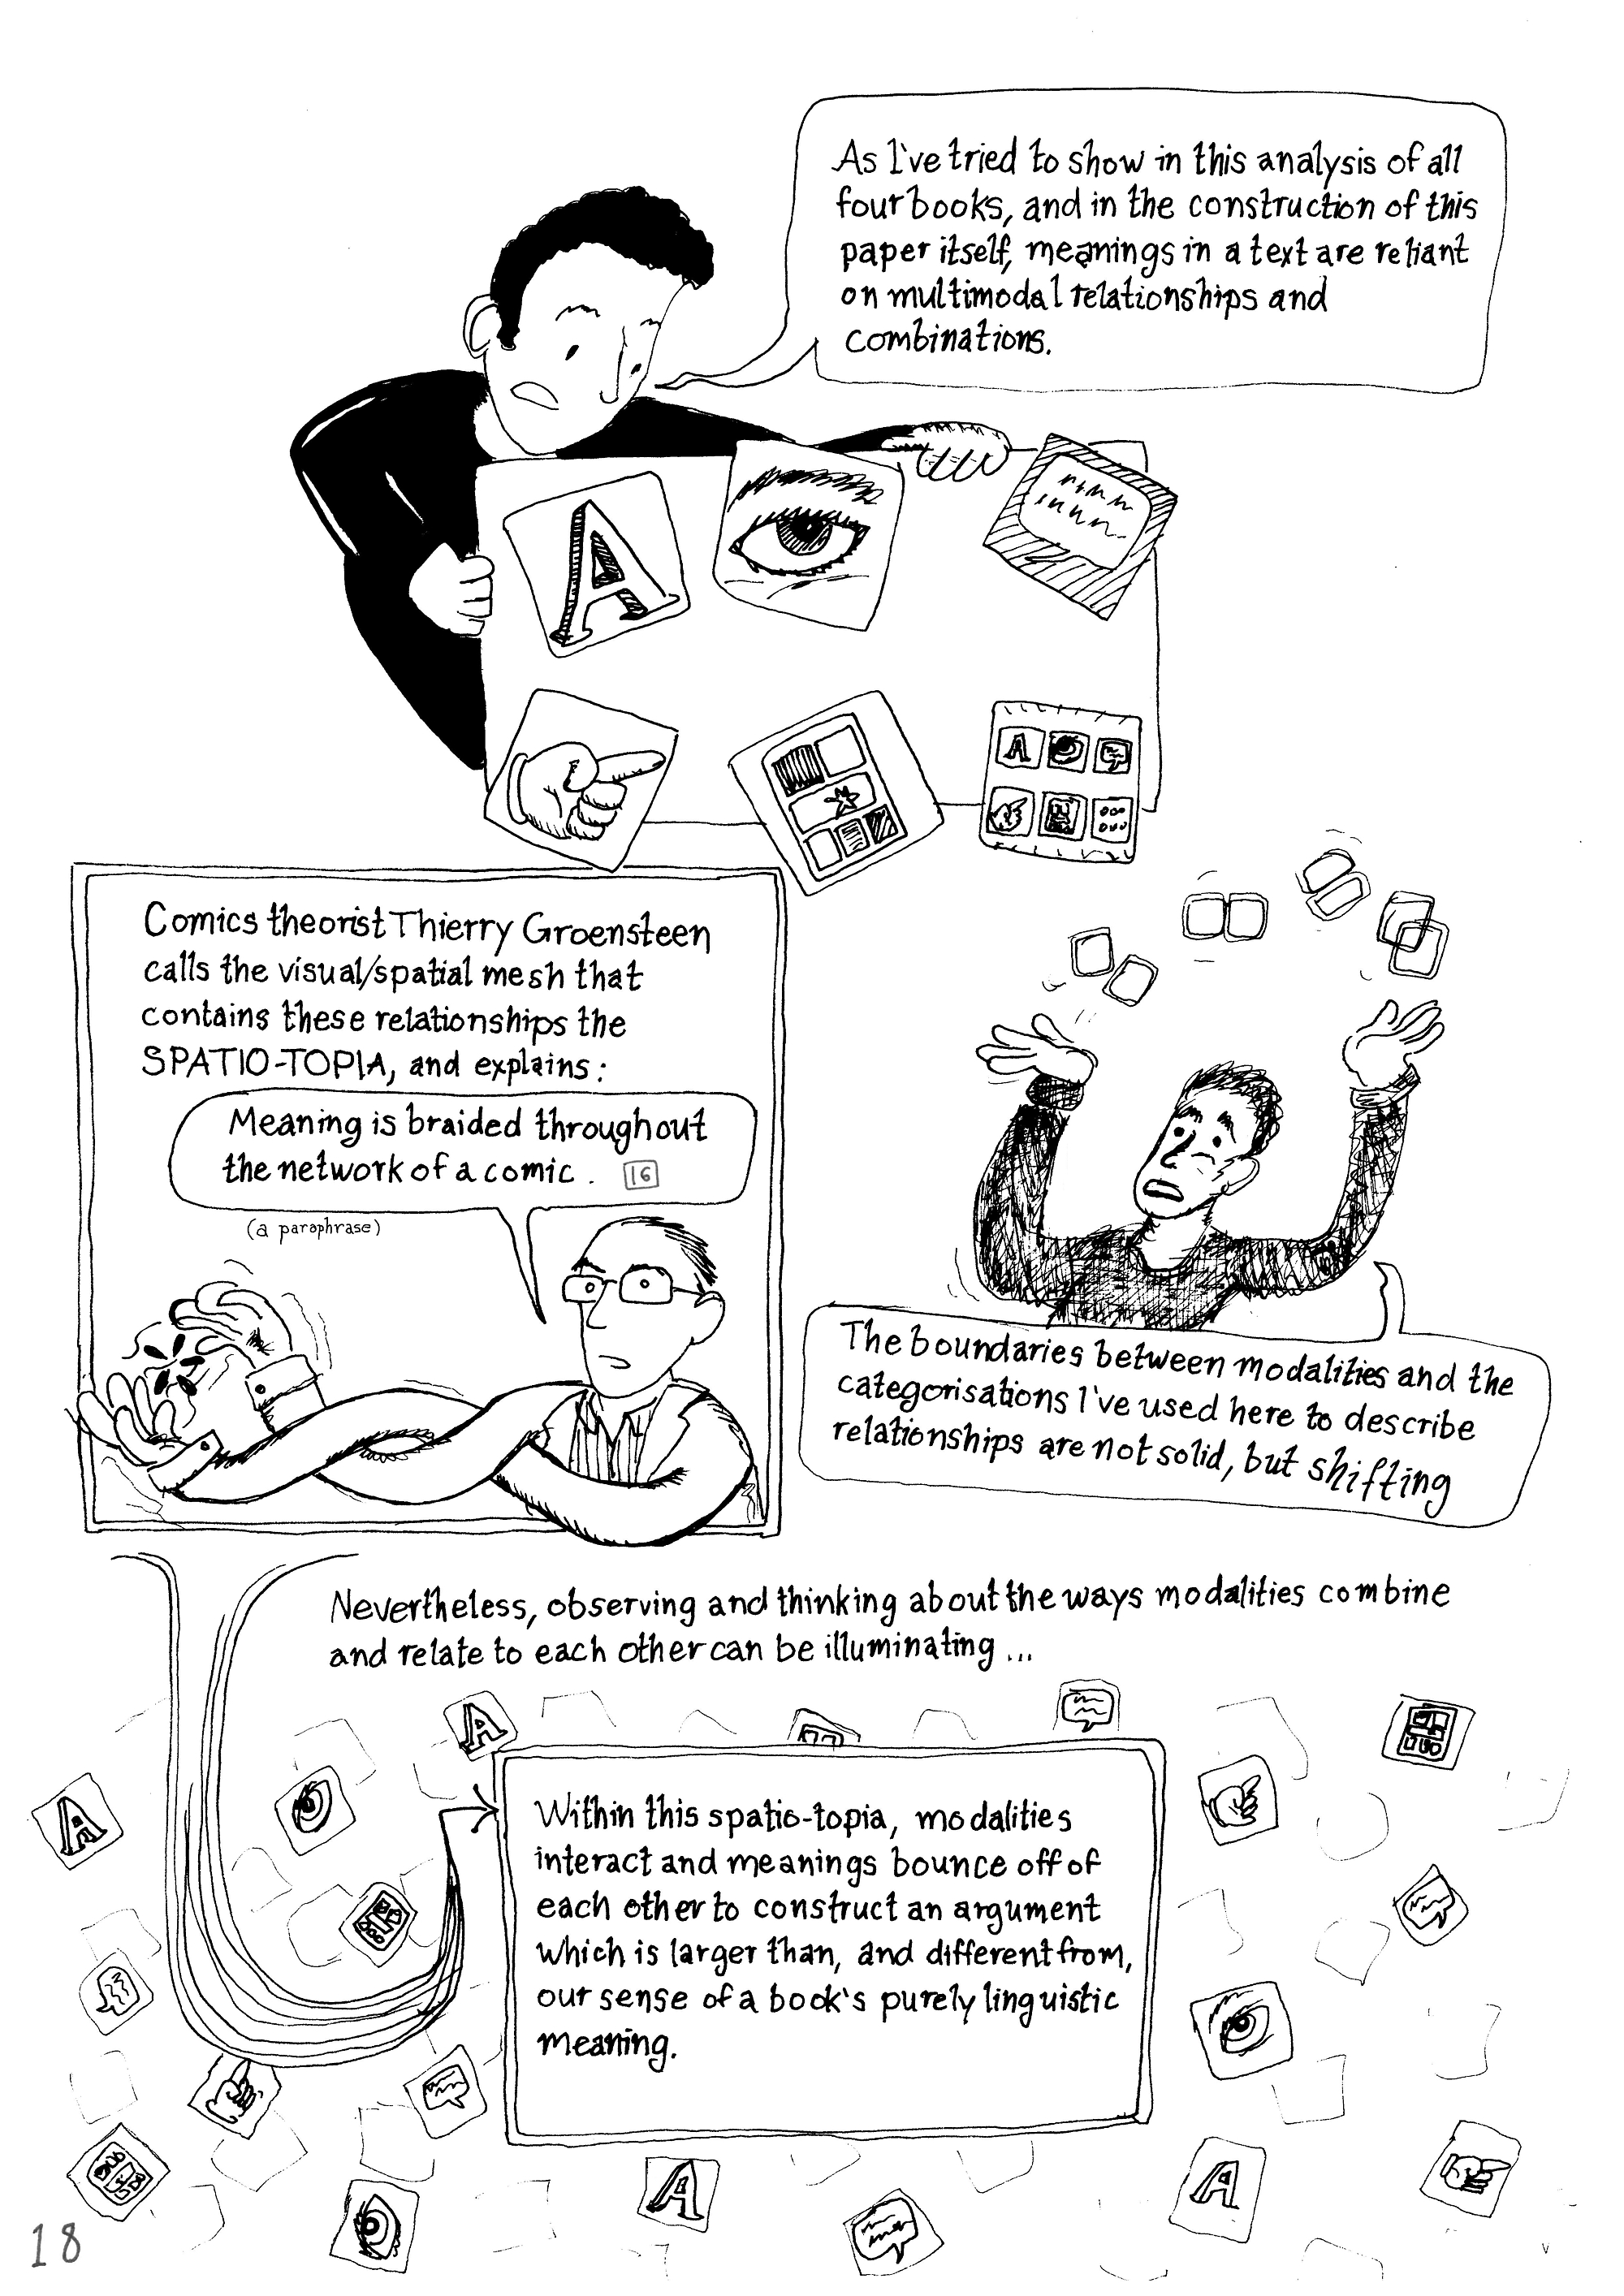 As I've tried to show in this analysis of all
four books, and in the construction of this
paper itself, meanings in a text are reliant
on multimodal relationships and
combinations.
A
A
Comics theorist Thierry Groensteen
calls the visual/spatial mesh that
contains these relationships the
SPATIO-TOPIA, and explains:
Meaning is braided throughout
the network of a comic. 16
(a paraphrase)
The boundaries between modalities and the
categorisations I've used here to describe
relationships are not solid, but shifting
Nevertheless, observing and thinking about the ways modalities combine
and relate to each other can be illuminating ...
A
A
Within this spatio-topia, modalities
interact and meanings bounce off of
each other to construct an argument
which is larger than, and different from,
our sense of a book's purely linguistic
meaning.
A
A
18